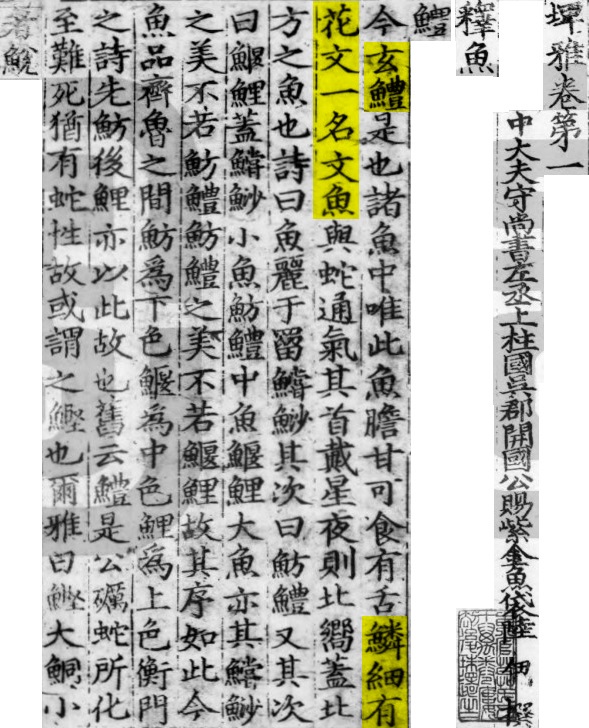 埤雅卷第一
中大夫守尚書左丞上柱國吳郡開國公賜紫金魚袋陸佃撰
釋魚
鱧
今玄鱧是也諸魚中唯此魚膽甘可食有舌鱗細有
花文一名文魚與蛇通氣其首戴星夜則北嚮蓋北
方之魚也詩曰魚麗于罶鱨魦其次曰魴鱧又其次
曰鰋鯉蓋鱨魦小魚魴鱧中魚鰋鯉大魚亦其鱨魦
之美不若魴鱧魴鱧之美不若鰋鯉故其序如此今
魚品齊魯之間魴爲下色鰋為中色鯉爲上色衡門
之詩先魴後鯉亦以此故也舊云鱧是公礪蛇所化
至難死猶有蛇性故或謂之鰹也爾雅曰鰹大鮦小
者鮵